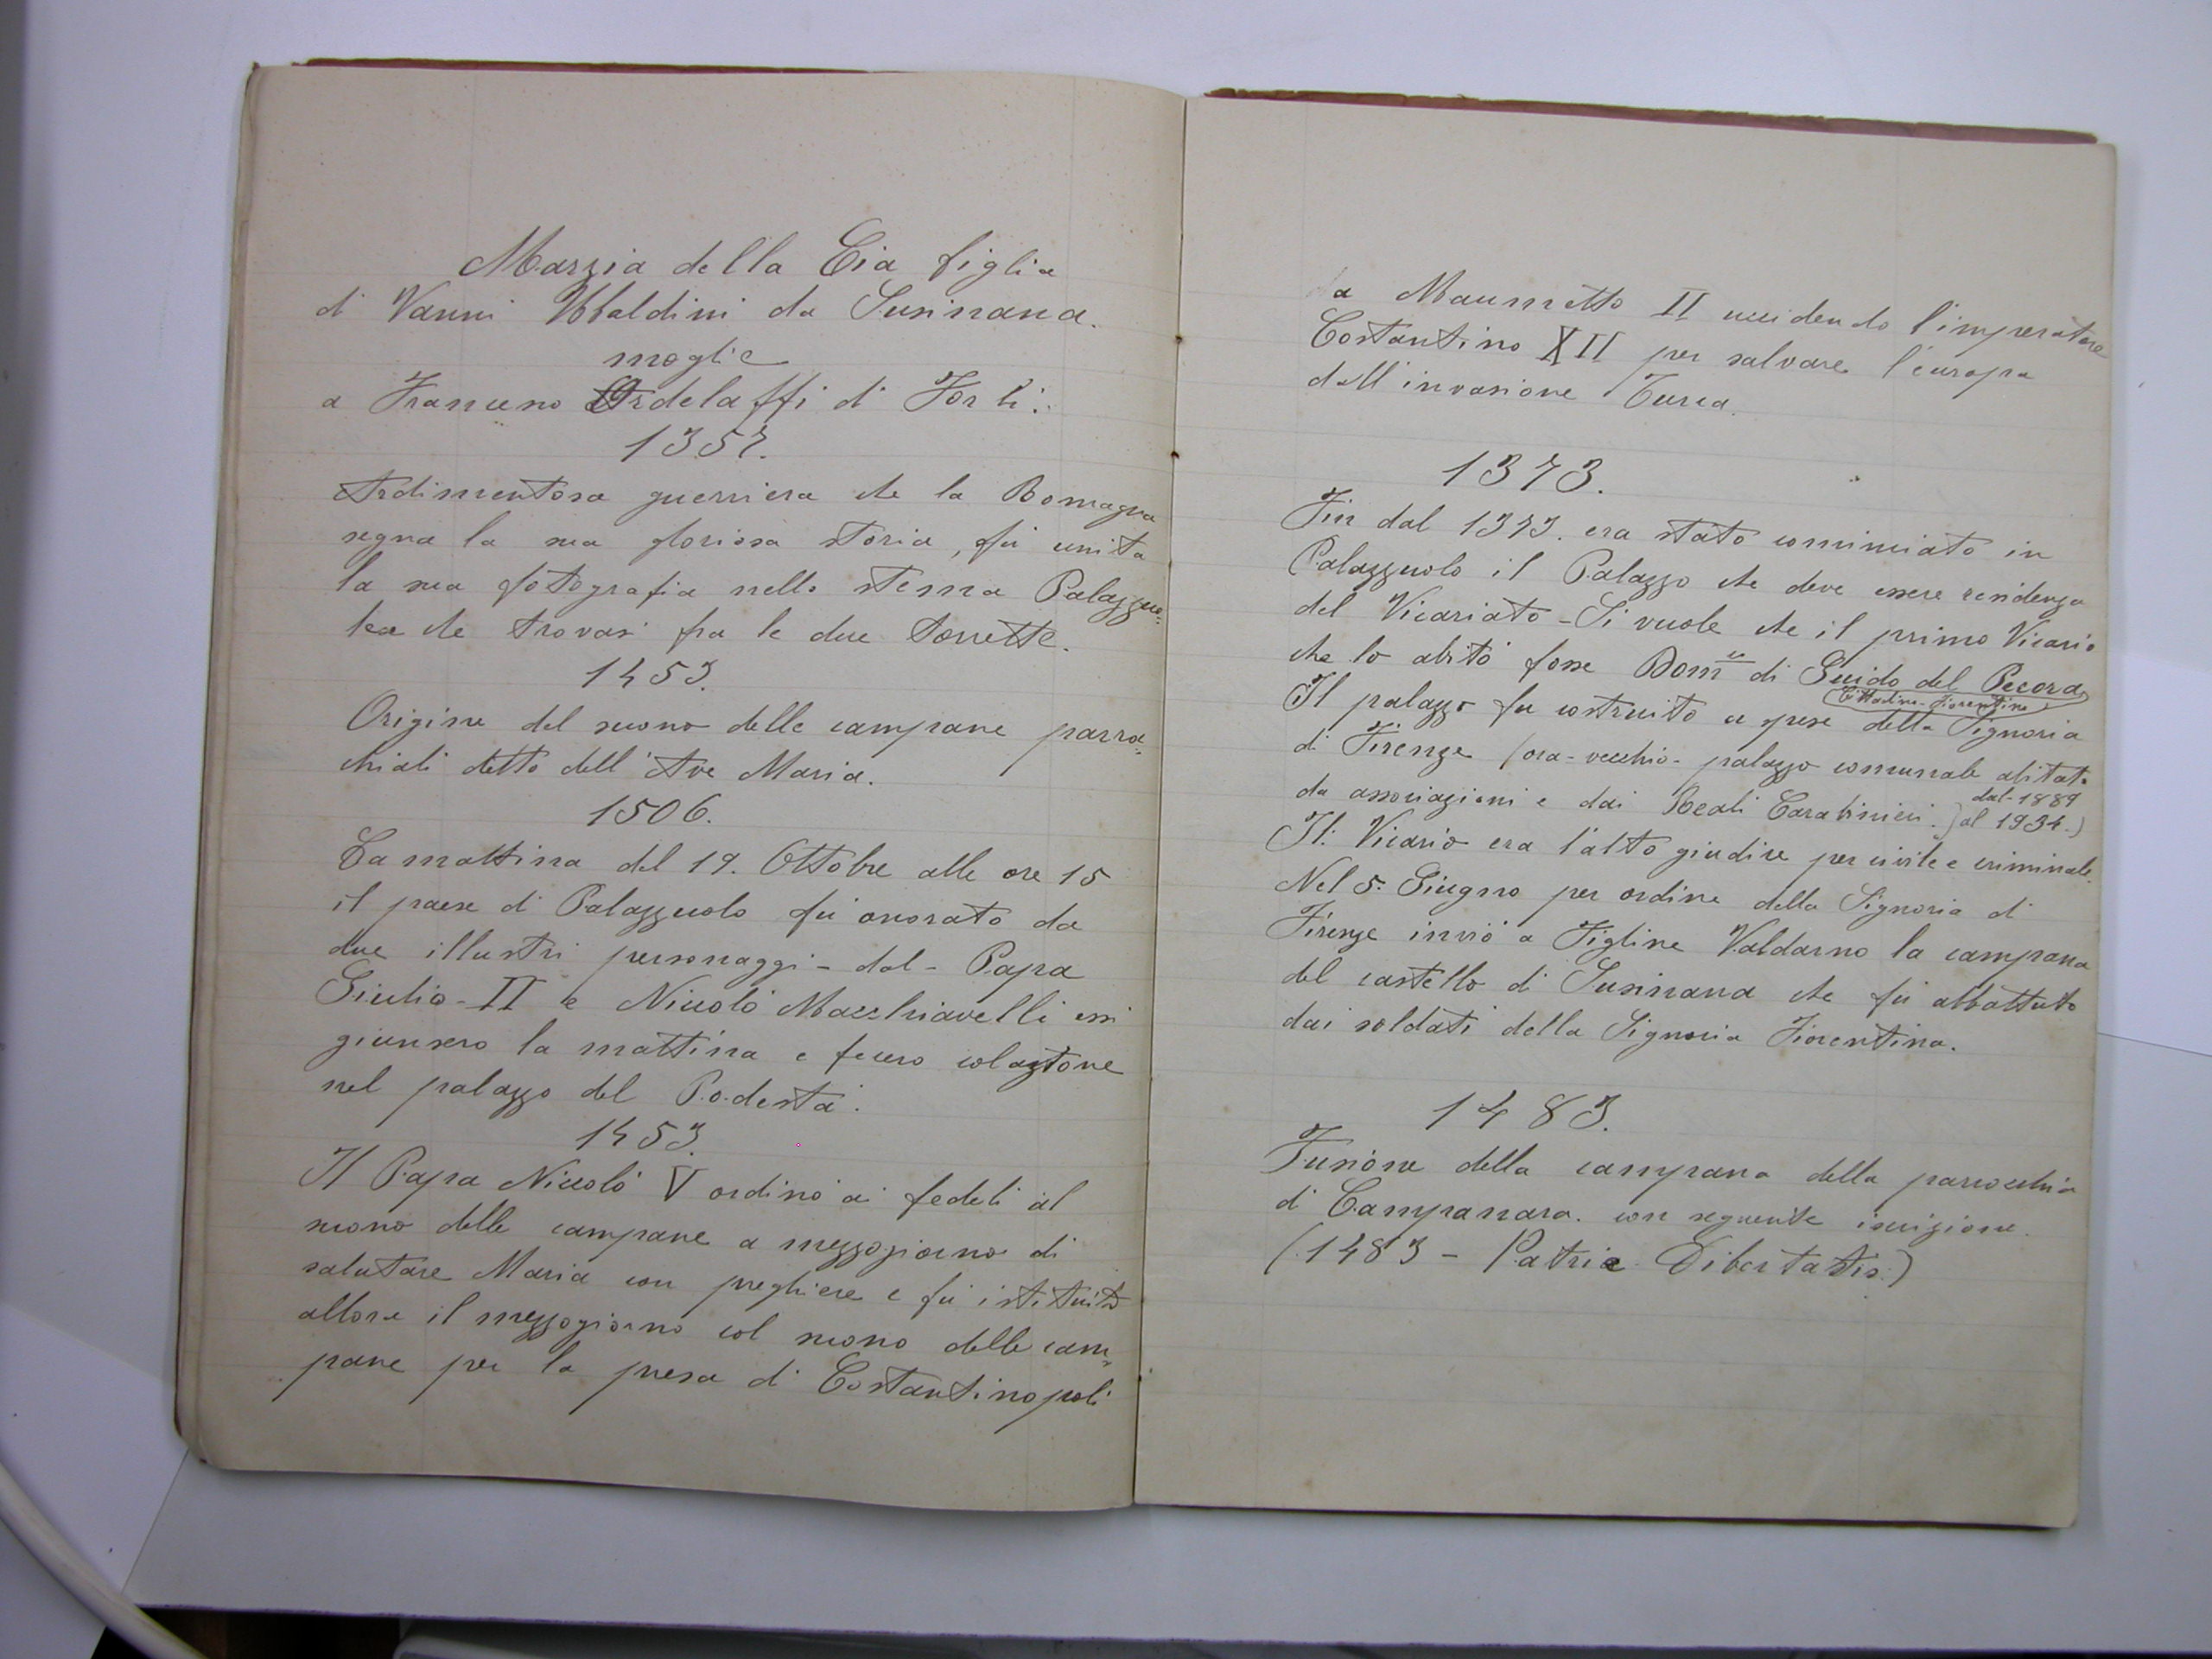 Marzia della Cia figlia
di Vanni Ubaldini da Susinana.
moglie
a Francesco Ordelaffi di Forlì.
1357.
Ardimentosa guerriera che la Romagna
segna la sua gloriosa storia, fù unita
la sua fotografia nello stemma Palazzuo=
lese che trovasi fra le due torrette.
1453.
Origine del suono delle campane parro=
chiali detto dell'Ave Maria.
1506.
La mattina del 19. Ottobre alle ore 15
il paese di Palazzuolo fù onorato da
due illustri personaggi - dal - Papa
Giulio - II e Niccolò Macchiavelli essi
giunsero la mattina e fecero colazione
nel palazzo del Podestà.
1453.
Il Papa Niccolò V ordinò ai fedeli al
suono delle campane a mezzogiorno di
salutare Maria con preghiere e fù istituito
allora il mezzogiorno col suono delle cam=
pane per la presa di Costantinopoli
da Maumetto II uccidendo l'imperatore
Costantino XII per salvare l'europa
dall'invasione Turca.
1373.
Fin dal 1373. era stato cominciato in
Palazzuolo il Palazzo che deve essere residenza
del Vicariato - Si vuole che il primo Vicario
che lo abitò fosse Domco di Guido del Pecora
(Cittadino - Fiorentino)
Il palazzo fu costruito a spese della Signoria
di Firenze (ora - vecchio - palazzo comunale abitato
da associazioni e dai Reali Carabinieri.) dal - 1889
al 1934.)
Il: Vicario era l'alto giudice per civile e criminale.
Nel 5. Giugno per ordine della Signoria di
Firenze inviò a Figline Valdarno la campana
del castello di Susinana che fù abbattuto
dai soldati della Signoria Fiorentina.
1483.
Fusione della campana della parrocchia
di Campanara. con seguente iscrizione.
(1483 - Patrie Libertatis.)